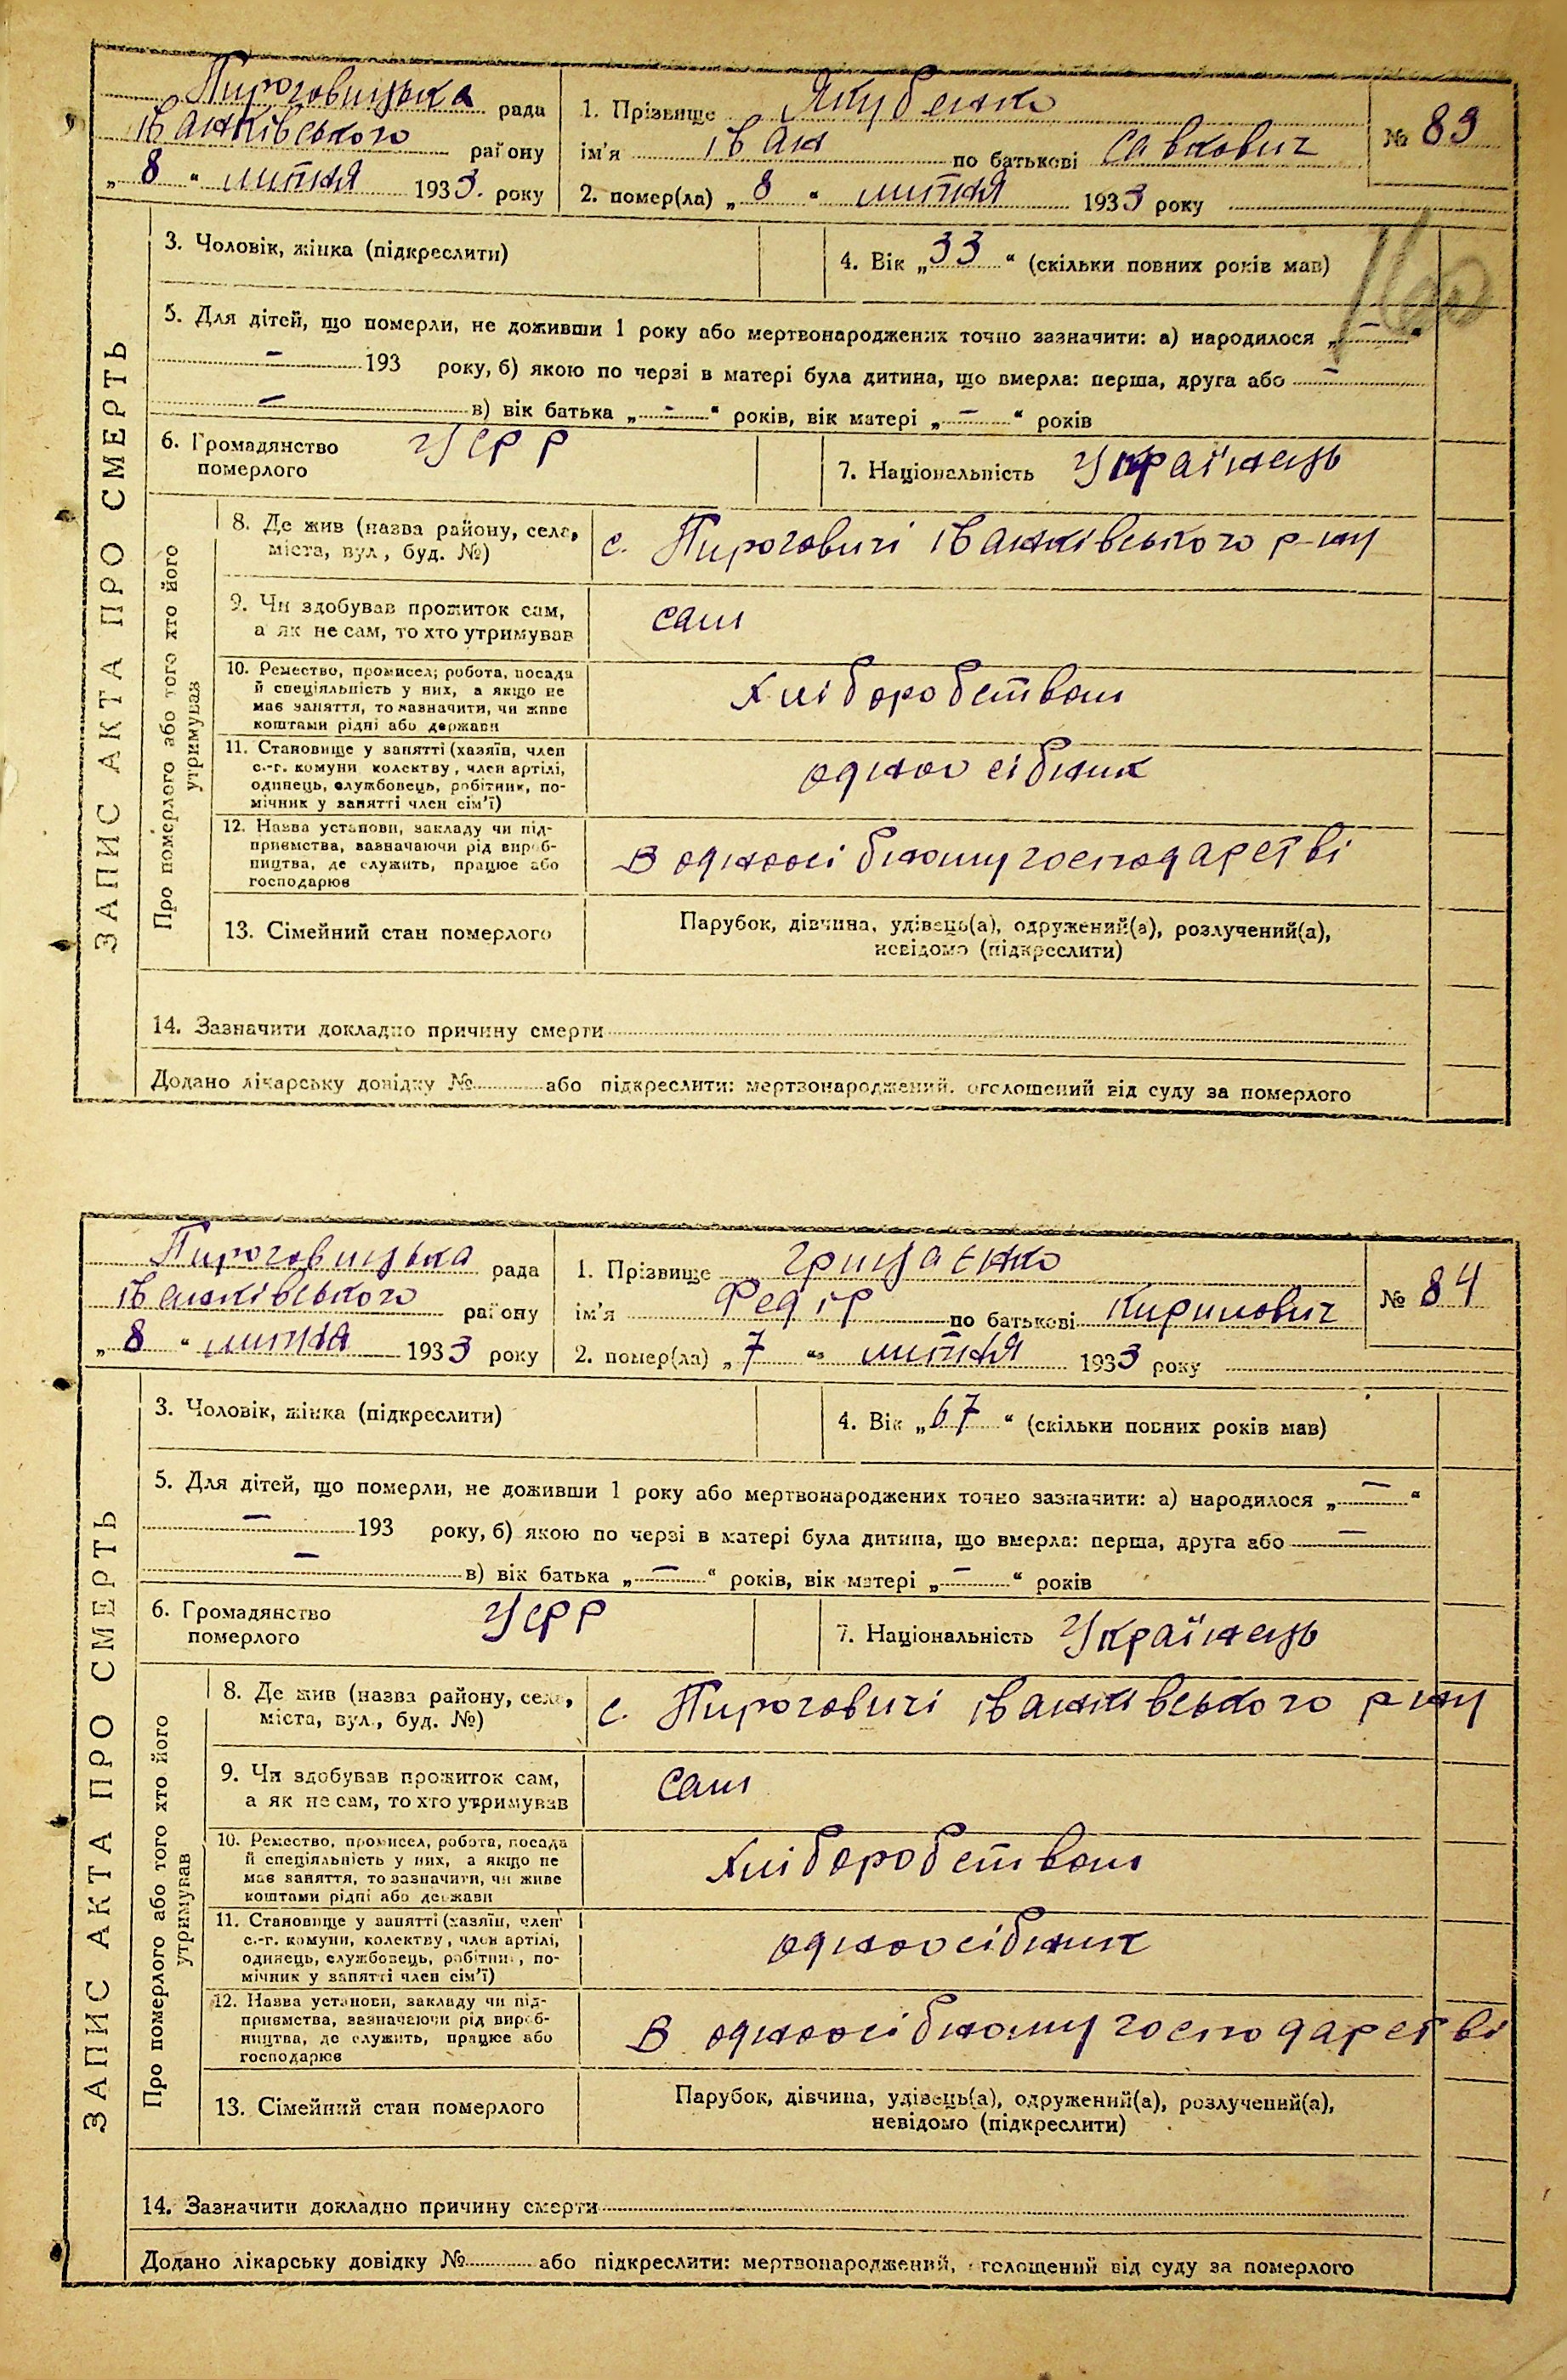 Пироговицька рада
Іванківського району
„ 8 “ липня 1933. року
1. Прізвище Якубенко
ім'я Іван по батькові Савкович
2. помер(ла) „ 8 “ липня 1933 року
№ 83
ЗАПИС АКТА ПРО СМЕРТЬ
3. Чоловік, жінка (підкреслити)
4. Вік „ 33 “ (скільки повних років мав)
5. Для дітей, що померли, не доживши 1 року або мертвонароджених точно зазначити: а) народилося „ — “
— 193 року, б) якою по черзі в матері була дитина, що вмерла: перша, друга або —
— в) вік батька „ — “ років, вік матері „ — “ років
6. Громадянство
померлого
УСРР
7. Національність Українець
Про померлого або того хто його
утримував
8. Де жив (назва району, села,
міста, вул., буд. №)
с. Пироговичі Іванківського р-ну
9. Чи здобував прожиток сам,
а як не сам, то хто утримував
сам
10. Ремество, промисел; робота, посада
й спеціяльність у них, а якщо не
має заняття, то зазначити, чи живе
коштами рідні або держави
хліборобством
11. Становище у занятті (хазяїн, член
с.-г. комуни, колективу, член артілі,
одинець, службовець, робітник, по-
мічник у занятті член сім'ї)
одноосібник
12. Назва установи, закладу чи під-
приємства, зазначаючи рід вироб-
ництва, де служить, працює або
господарює
в одноосібному господарстві
13. Сімейний стан померлого
Парубок, дівчина, удівець(а), одружений(а), розлучений(а),
невідомо (підкреслити)
14. Зазначити докладно причину смерти
Додано лікарську довідку № або підкреслити: мертвонароджений, оголошений від суду за померлого
Пироговицька рада
Іванківського району
„ 8 “ липня 1933 року
1. Прізвище Грищенко
ім'я Федір по батькові Кирилович
2. помер(ла) „ 7 “ липня 1933 року
№ 84
ЗАПИС АКТА ПРО СМЕРТЬ
3. Чоловік, жінка (підкреслити)
4. Вік „ 67 “ (скільки повних років мав)
5. Для дітей, що померли, не доживши 1 року або мертвонароджених точно зазначити: а) народилося „ — “
— 193 року, б) якою по черзі в матері була дитина, що вмерла: перша, друга або —
— в) вік батька „ — “ років, вік матері „ — “ років
6. Громадянство
померлого
УСРР
7. Національність Українець
Про померлого або того хто його
утримував
8. Де жив (назва району, села,
міста, вул., буд. №)
с. Пироговичі Іванківського р-ну
9. Чи здобував прожиток сам,
а як не сам, то хто утримував
сам
10. Ремество, промисел, робота, посада
й спеціяльність у них, а якщо не
має заняття, то зазначити, чи живе
коштами рідні або держави
хліборобством
11. Становище у занятті (хазяїн, член
с.-г. комуни, колективу, член артілі,
одинець, службовець, робітник, по-
мічник у занятті член сім'ї)
одноосібник
12. Назва установи, закладу чи під-
приємства, зазначаючи рід вироб-
ництва, де служить, працює або
господарює
в одноосібному господарстві
13. Сімейний стан померлого
Парубок, дівчина, удівець(а), одружений(а), розлучений(а),
невідомо (підкреслити)
14. Зазначити докладно причину смерти
Додано лікарську довідку № або підкреслити: мертвонароджений, оголошений від суду за померлого